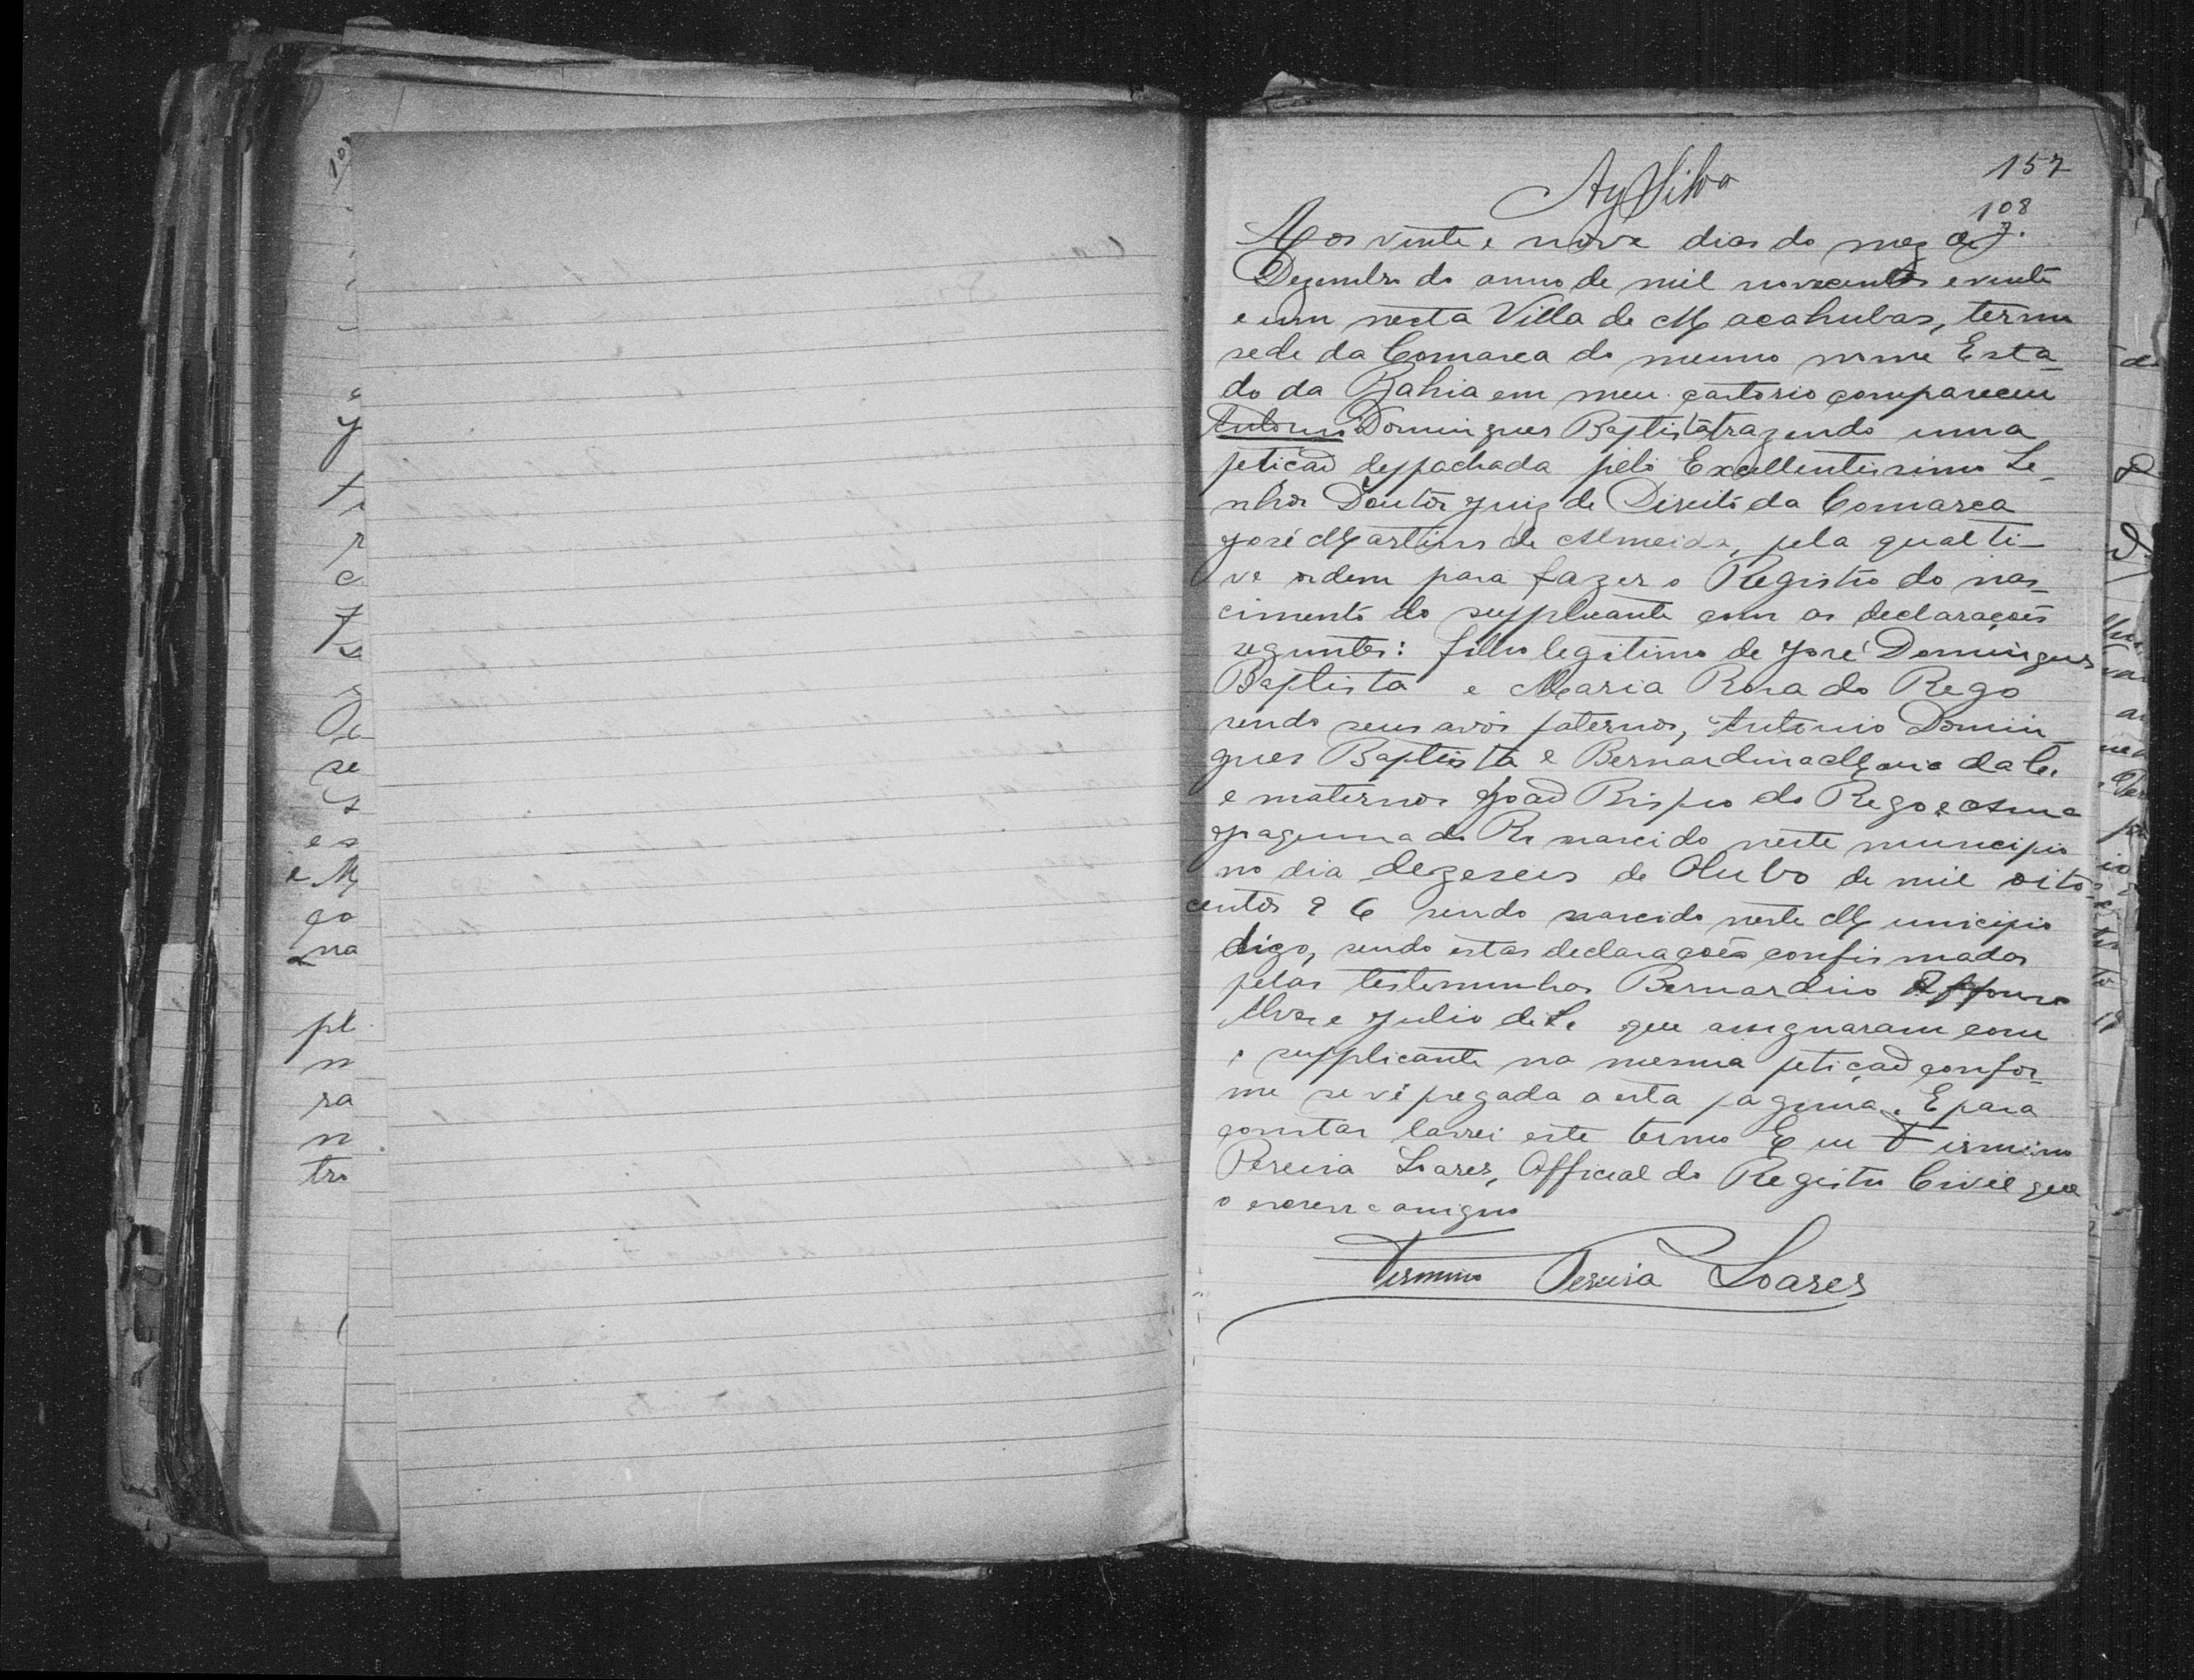 157
108
Aos vinte e nove dias do mez de
Dezembro do anno de mil novecentos e vinte
e um nesta Villa de Macahubas, termo
sede da Comarca do mesmo nome Esta-
do da Bahia em meu cartorio compareceu
Antonio Domingues Baptista trazendo uma
petição despachada pelo Excellentissimo Se-
nhor Doutor Juiz de Direito da Comarca
José Martins de Almeida, pela qual ti-
ve ordem para fazer o Registro do nas-
cimento do supplicante com as declarações
seguntes: filho legitimo de José Domingues
Baptista e Maria Rosa do Rego
sendo seus avós paternos, Antonio Domin-
gues Baptista e Bernardina Maria da C.
e maternos João Bispo do Rego e Anna
do R. nascido neste municipio
no dia dezeseis de de mil oito-
centos e 6 sendo nascido neste Municipio
digo, sendo estas declarações confirmadas
pelas testemunhas Bernardino Affonso
Alves e Julio de S. que assignaram com
o supplicante na mesma petição confor-
me se vê pregada a esta pagina. E para
constar lavrei este termo Eu Firmino
Pereira Soares, Official do Registro Civil que
o escrevi e assigno
Firmino Pereira Soares